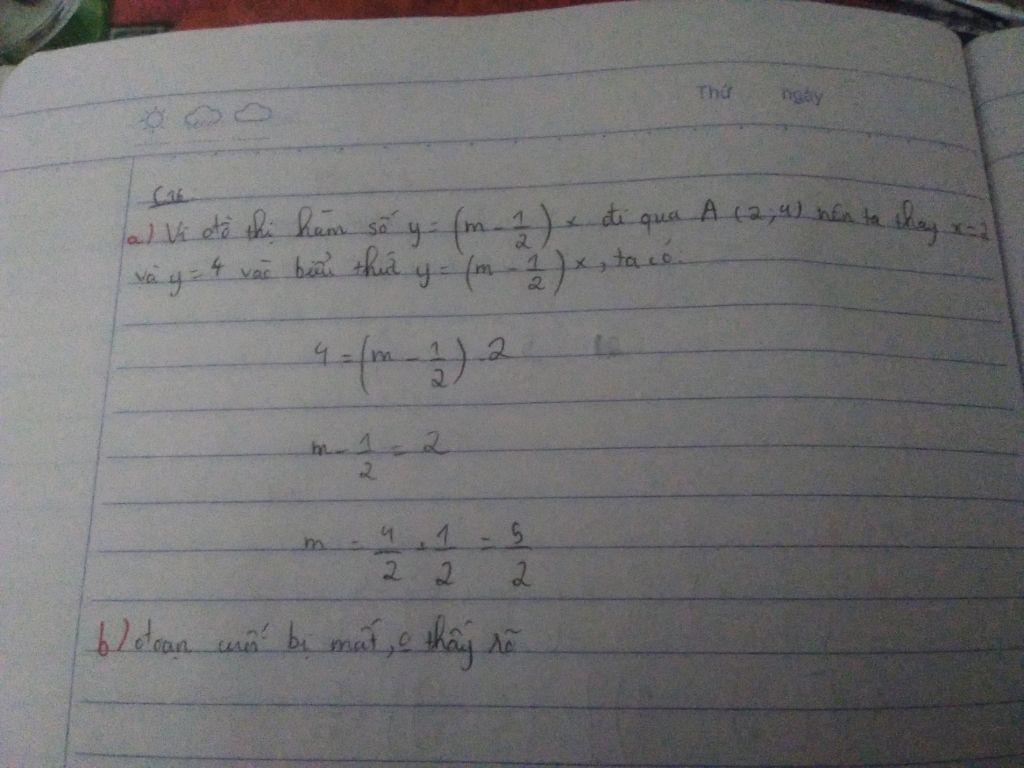 Thứ ngày
C16.
a) Vì đồ thị hàm số y = (m - 1/2) x đi qua A (2; 4) nên ta thay x = 2
và y = 4 vào biểu thức y = (m - 1/2) x, ta có.
4 = (m - 1/2) . 2
m - 1/2 = 2
m = 4/2 + 1/2 = 5/2
b) đoạn cuối bị mất, o thấy rõ